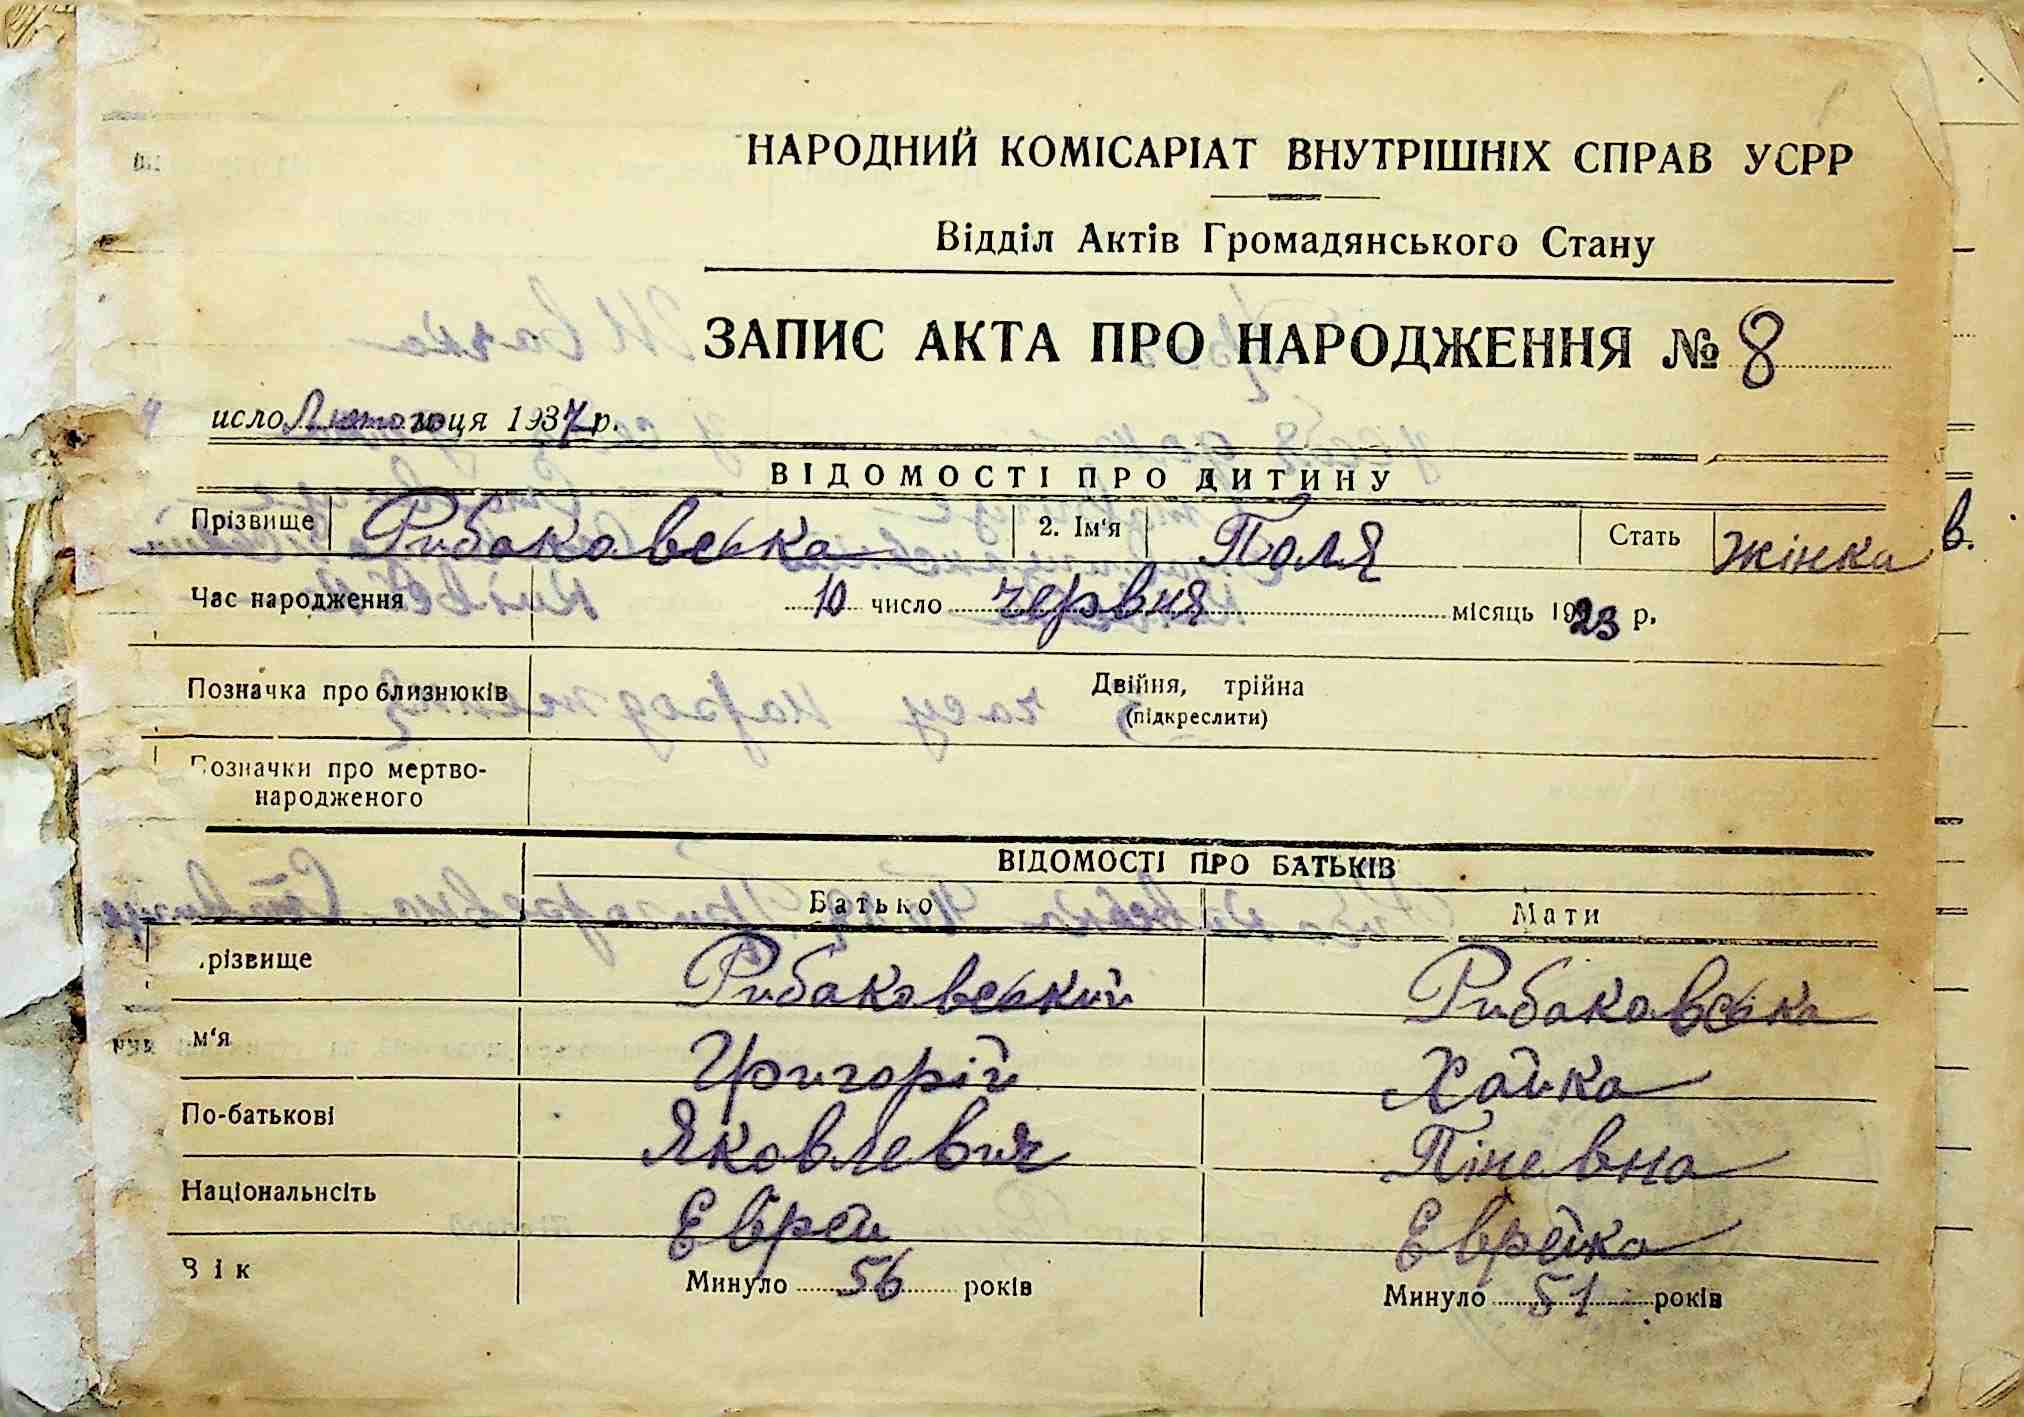 НАРОДНИЙ КОМІСАРІАТ ВНУТРІШНІХ СПРАВ УСРР
Відділ Актів Громадянського Стану
ЗАПИС АКТА ПРО НАРОДЖЕННЯ № 8
исло Лютого ця 1937 р.
ВІДОМОСТІ ПРО ДИТИНУ
Прізвище Рибаковська 2. Ім'я Поля Стать жінка в.
Час народження 10 число червня місяць 1923 р.
Позначка про близнюків Двійня, трійна
(підкреслити)
Позначки про мертво-
народженого
ВІДОМОСТІ ПРО БАТЬКІВ
Батько Мати
різвище Рибаковський Рибаковська
м'я Григорій Хайка
По-батькові Яковлевич Піневна
Національнсіть Еврей Еврейка
Вік Минуло 56 років Минуло 51 років